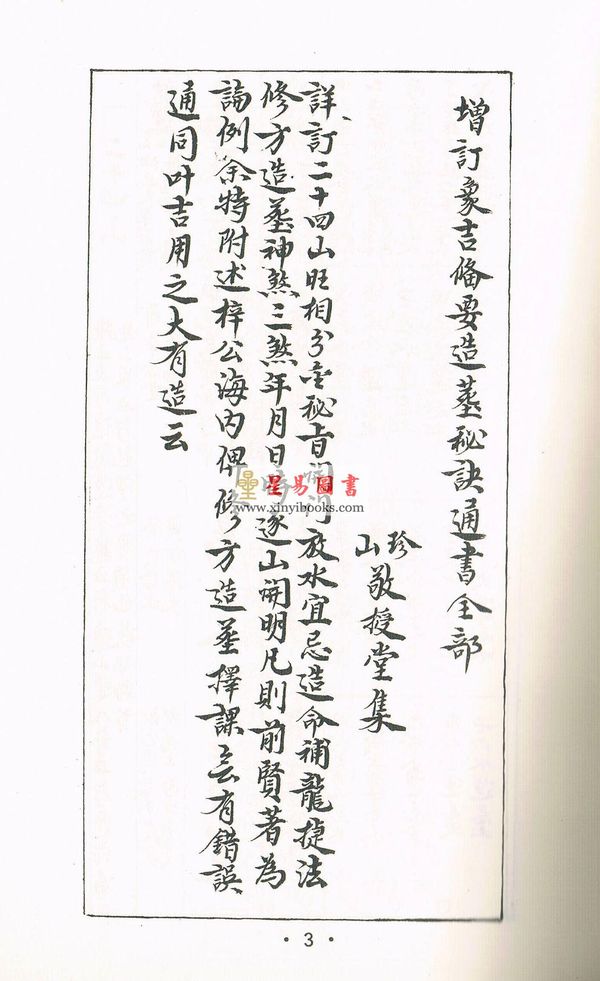 增訂象吉俻要造葬秘訣通書全部
珍山敬授堂集
詳訂二十四山旺相分金秘旨開門放水宜忌造命補龍捷法
修方造葬神煞三煞年月日時逐山開明凡則前賢著為
論例余特附述梓公海內俾修方造葬擇課無有錯誤
通同叶吉用之大有造云
星易圖書
www.xinyibooks.com
· 3 ·